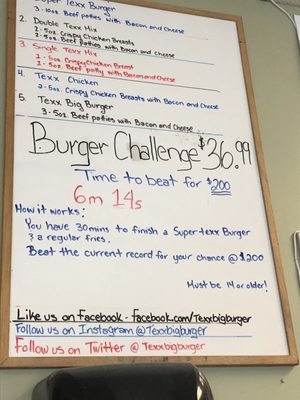 Super Texx Burger
3-10oz Beef patties with Bacon and Cheese
2. Double Texx Mix
2-5oz. Crispy Chicken Breasts
2-5oz. Beef Patties with Bacon and Cheese
3. Single Texx Mix
1-5oz. Crispy Chicken Breast
1-5oz. Beef patty with Bacon and Cheese
4. Texx Chicken
2-5oz. Crispy Chicken Breasts with Bacon and Cheese
5. Texx Big Burger
3-5oz. Beef Patties with Bacon and Cheese
Burger Challenge $36.99
Time to beat for $200
6m 14s
How it works:
You have 30mins to finish a Super-texx Burger
& a regular fries.
Beat the current record for your chance @ $200
Must be 14 or older!
Like us on Facebook - facebook.com/Texxbigburger
Follow us on Instagram @Texxbigburger
Follow us on Twitter @Texxbigburger